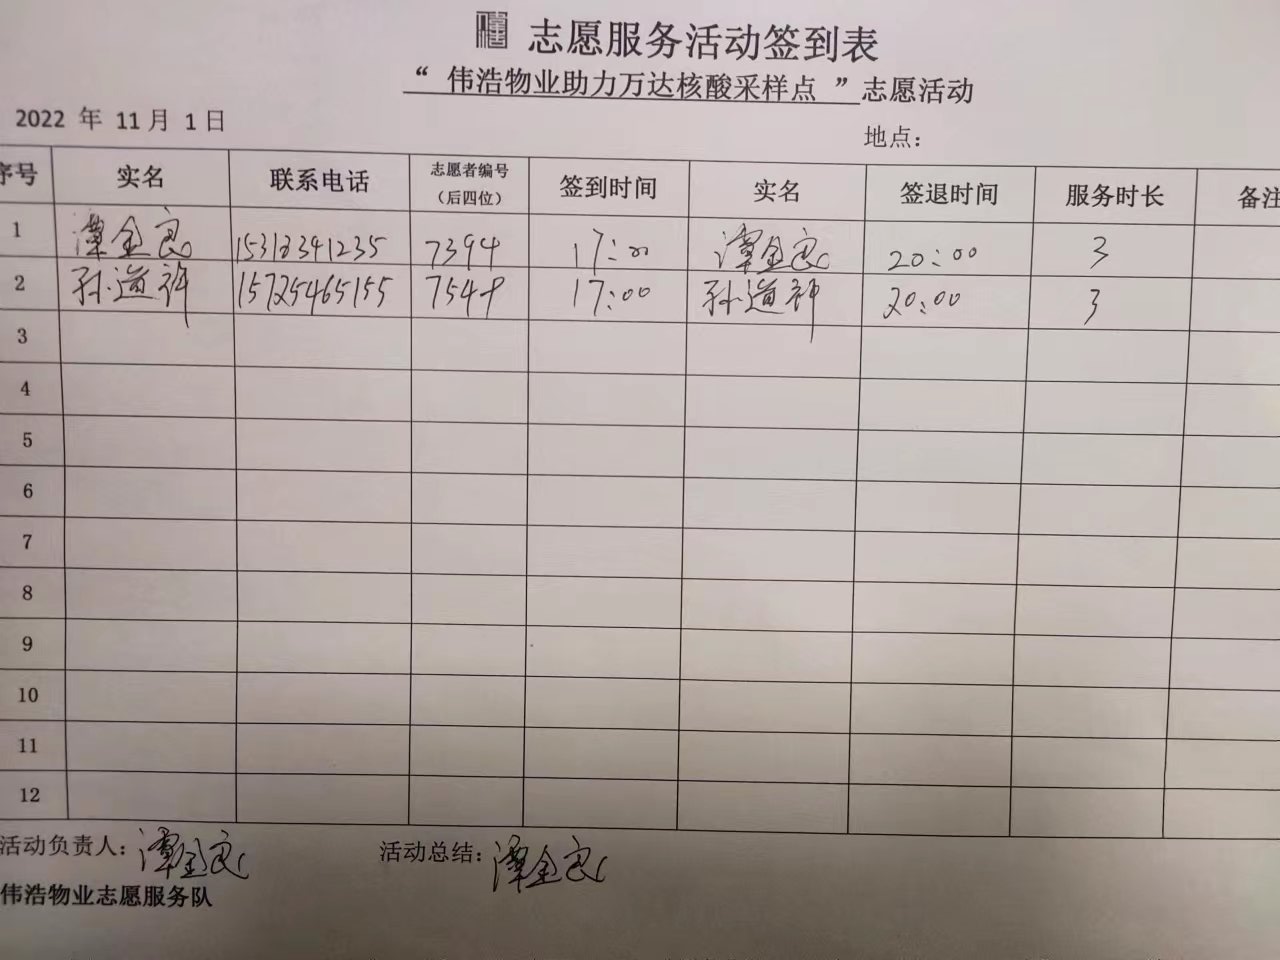 志愿服务活动签到表
“ 伟浩物业助力万达核酸采样点 ”志愿活动
2022 年 11 月 1 日
地点：
序号 实名 联系电话 志愿者编号（后四位） 签到时间 实名 签退时间 服务时长 备注
1 潭金良 15318341235 7394 17:00 潭金良 20:00 3
2 孙道神 15725465155 754 17:00 孙道神 20:00 3
3
4
5
6
7
8
9
10
11
12
活动负责人：潭金良 活动总结：潭金良
伟浩物业志愿服务队